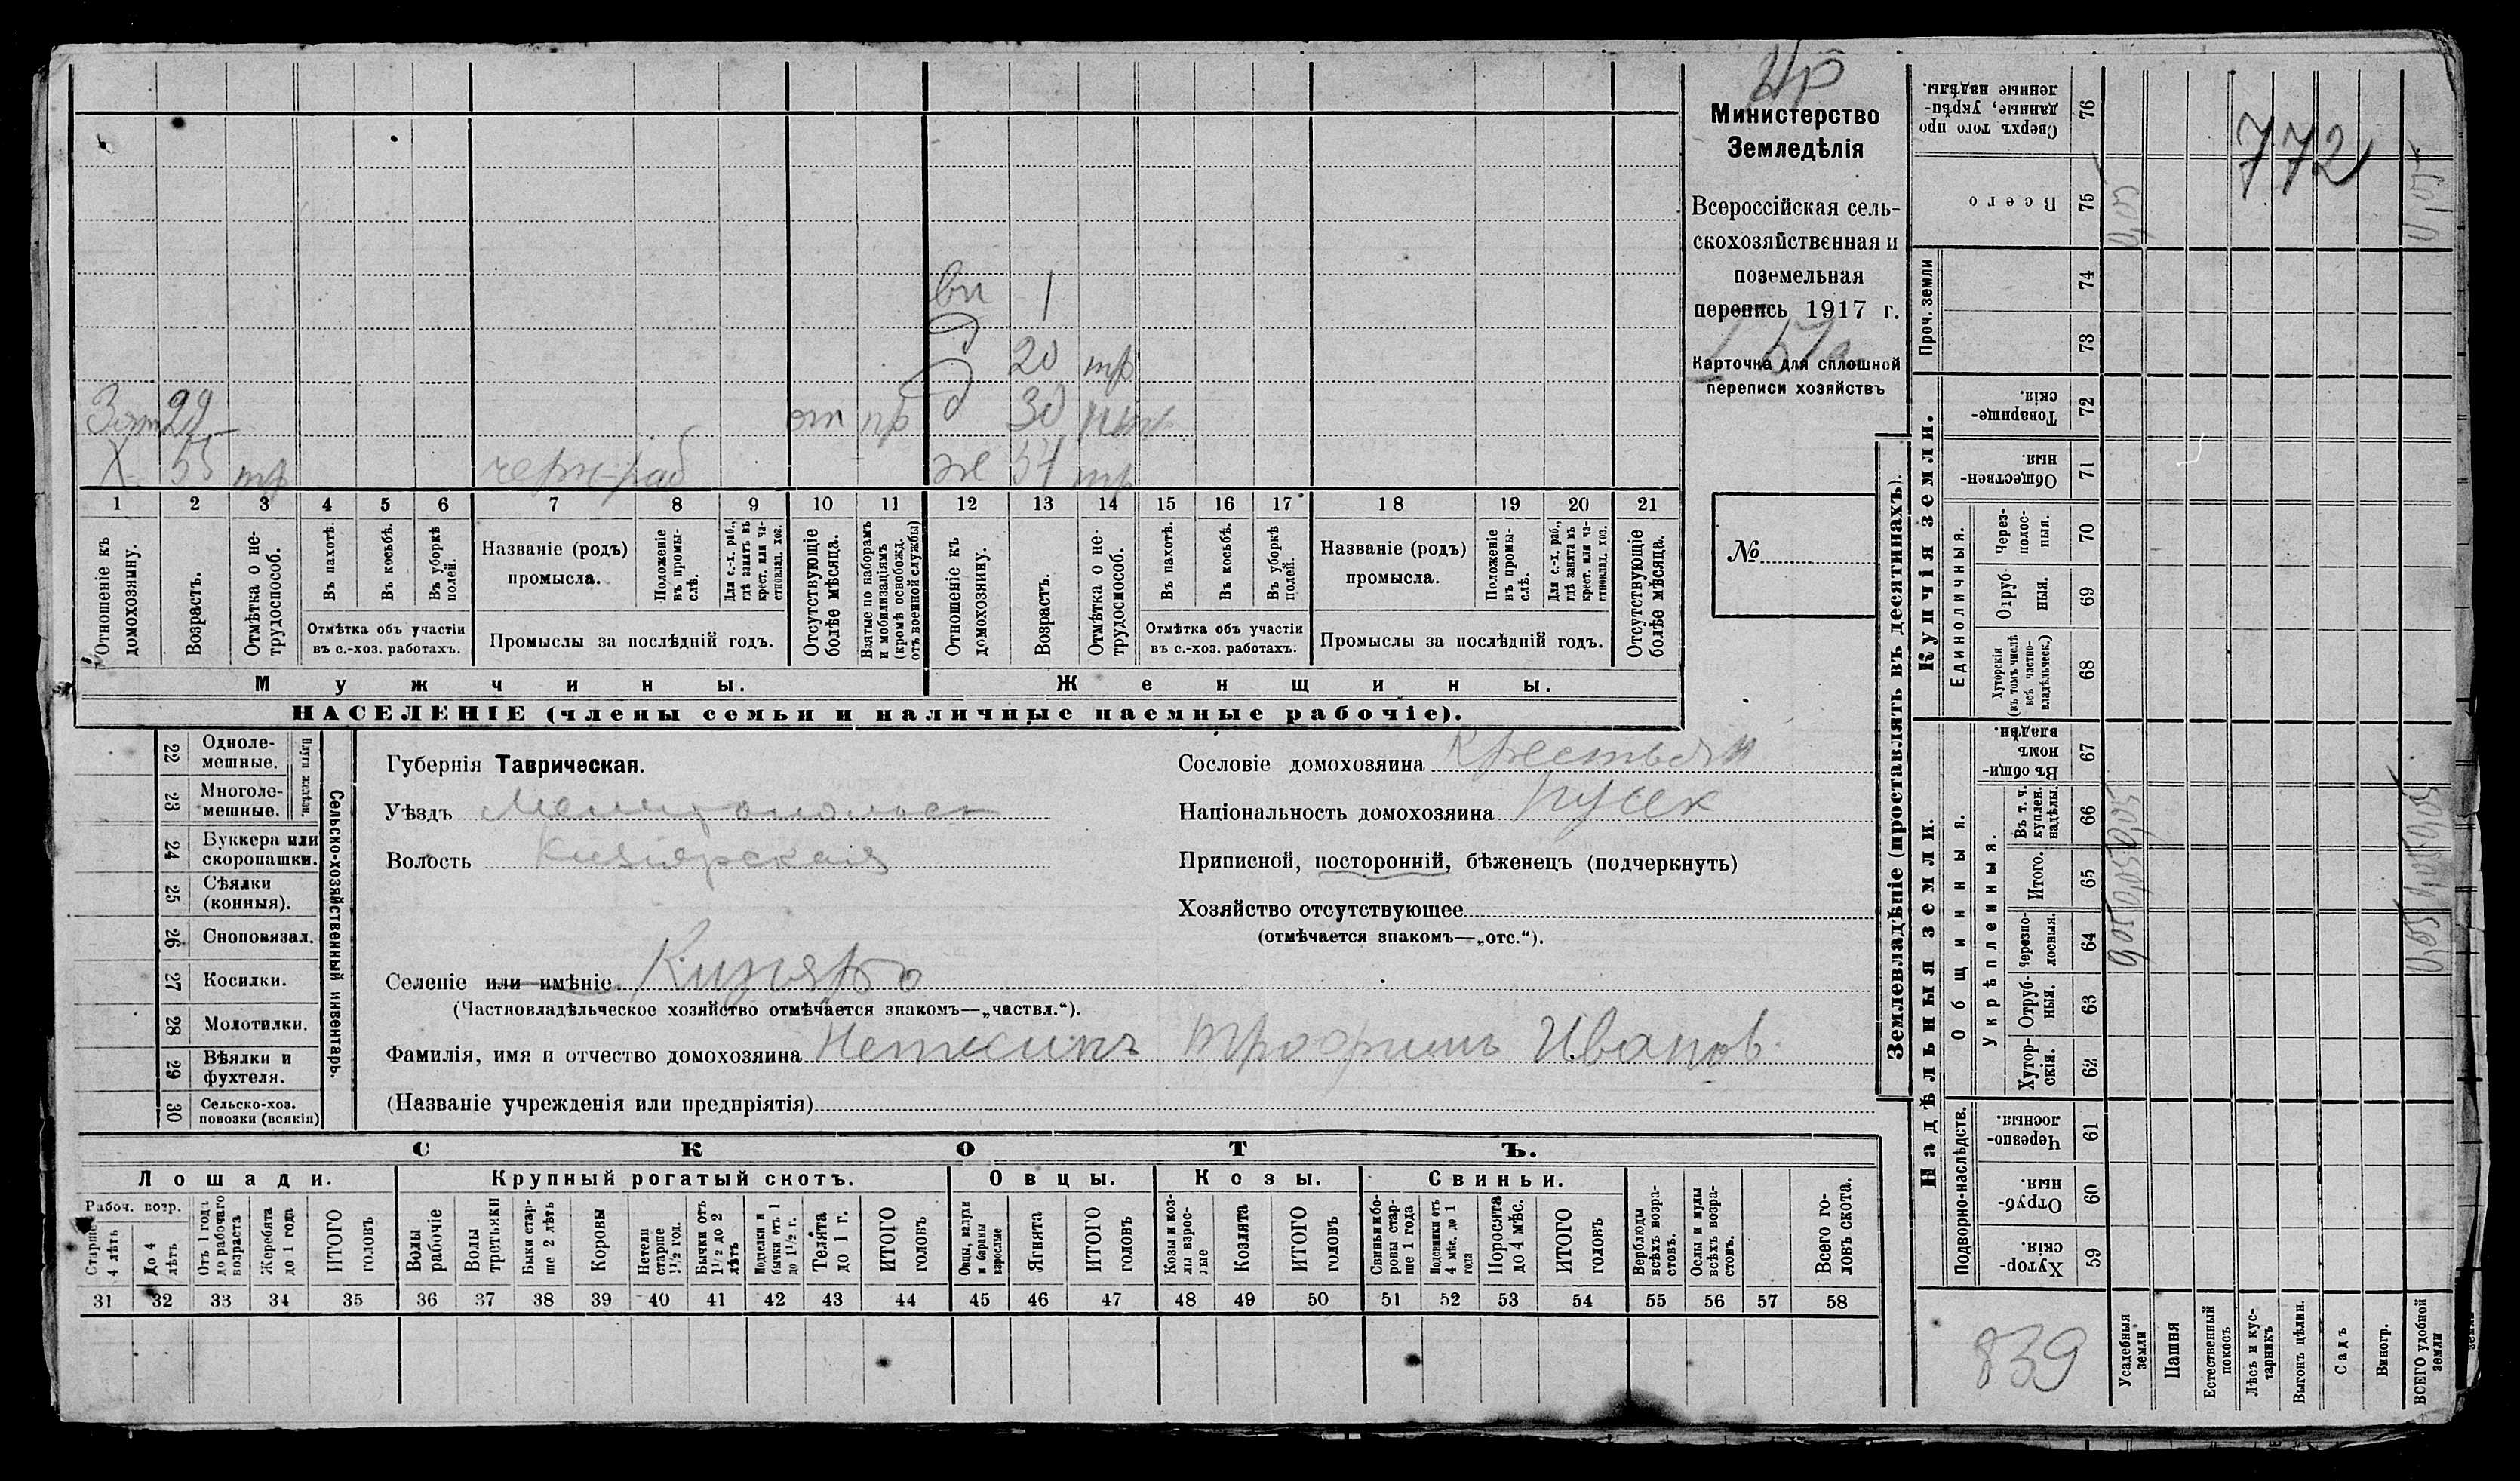 Министерство
Земледѣлія
Всероссійская сель-
скохозяйственная и
поземельная
перепись 1917 г.
Карточка для сплошной
переписи хозяйствъ
№
772
вн 1
д 20 тр
Зят 29 от д 30
Х 55 тр черн-раб же 54 тр
1 2 3 4 5 6 7 8 9 10 11 12 13 14 15 16 17 18 19 20 21
Отношеніе къ домохозяину.
Возрастъ.
Отмѣтка о не-трудоспособ.
Въ пахотѣ.
Въ косьбѣ.
Въ уборкѣ полей.
Отмѣтка объ участіи
въ с.-хоз. работахъ.
Названіе (родъ)
промысла.
Положеніе въ промы-слѣ.
Для с.-х. раб., гдѣ занятъ въ крест. или ча-стновлад. хоз.
Промыслы за послѣдній годъ.
Отсутствующіе болѣе мѣсяца.
Взятые по наборамъ и мобилизаціямъ (кромѣ освобожд. отъ военной службы)
Отношеніе къ домохозяину.
Возрастъ.
Отмѣтка о не-трудоспособ.
Въ пахотѣ.
Въ косьбѣ.
Въ уборкѣ полей.
Отмѣтка объ участіи
въ с.-хоз. работахъ.
Названіе (родъ)
промысла.
Положеніе въ промы-слѣ.
Для с.-х. раб., гдѣ занята въ крест. или ча-стновлад. хоз.
Промыслы за послѣдній годъ.
Отсутствующіе болѣе мѣсяца.
Мужчины. Женщины.
НАСЕЛЕНІЕ (члены семьи и наличные наемные рабочіе).
Сельско-хозяйственный инвентарь.
Плуги желѣзн.
22 Одноле-мешные.
23 Многоле-мешные.
24 Буккера или скоропашки.
25 Сѣялки (конныя).
26 Сноповязал.
27 Косилки.
28 Молотилки.
29 Вѣялки и фухтеля.
30 Сельско-хоз. повозки (всякія)
Губернія Таврическая.
Уѣздъ Мелитопольск
Волость Кизіярская
Селеніе или имѣніе Кизіяръ
(Частновладѣльческое хозяйство отмѣчается знакомъ—„частвл.“).
Фамилія, имя и отчество домохозяина Трофимъ Иванов.
(Названіе учрежденія или предпріятія)
Сословіе домохозяина Крестьян
Національность домохозяина русск
Приписной, посторонній, бѣженецъ (подчеркнуть)
Хозяйство отсутствующее
(отмѣчается знакомъ—„отс.“).
СКОТЪ.
Лошади. Крупный рогатый скотъ. Овцы. Козы. Свиньи.
Рабоч. возр.
Старше 4 лѣтъ
До 4 лѣтъ
Отъ 1 года до рабочаго возраста
Жеребята до 1 года
ИТОГО головъ
Волы рабочіе
Волы третьяки
Быки стар-ше 2 лѣтъ
Коровы
Нетели старше 1½ год.
Бычки отъ 1½ до 2 лѣтъ
Подтелки и бычки отъ 1 до 1½ г.
Телята до 1 г.
ИТОГО головъ
Овцы, валухи и бараны взрослые
Ягнята
ИТОГО головъ
Козы и коз-лы взрос-лые
Козлята
ИТОГО головъ
Свиньи бо-ровы стар-ше 1 года
Подсвинки отъ 4 мѣс. до 1 года
Поросята до 4 мѣс.
ИТОГО головъ
Верблюды всѣхъ возра-стовъ.
Ослы и мулы всѣхъ возра-стовъ.
Всего го-ловъ скота.
31 32 33 34 35 36 37 38 39 40 41 42 43 44 45 46 47 48 49 50 51 52 53 54 55 56 57 58
Землевладѣніе (проставлять въ десятинахъ).
Надѣльныя земли. Купчія земли. Проч. земли
Подворно-наслѣдств. Общинныя. Укрѣпленныя. Единоличныя.
Хутор-скія. 59
Отруб-ныя. 60
Черезпо-лосныя. 61
Хутор-скія. 62
Отруб-ныя. 63
Черезпо-лосныя. 64
Итого. 65
Въ т. ч. куплен. надѣлы. 66
Въ общин-номъ владѣн. 67
Хуторскія (въ томъ числѣ всѣ частно-владѣльческ.) 68
Отруб-ныя. 69
Через-полос-ныя. 70
Обществен-ныя. 71
Товарище-скія. 72
73
74
Всего 75
Сверхъ того про данные, укрѣп-ленные надѣлы. 76
839
Усадебныя земли
Пашня
Естественный покосъ
Лѣсъ и кус-тарникъ
Выгонъ цѣлин.
Садъ
Виногр.
ВСЕГО удобной земли